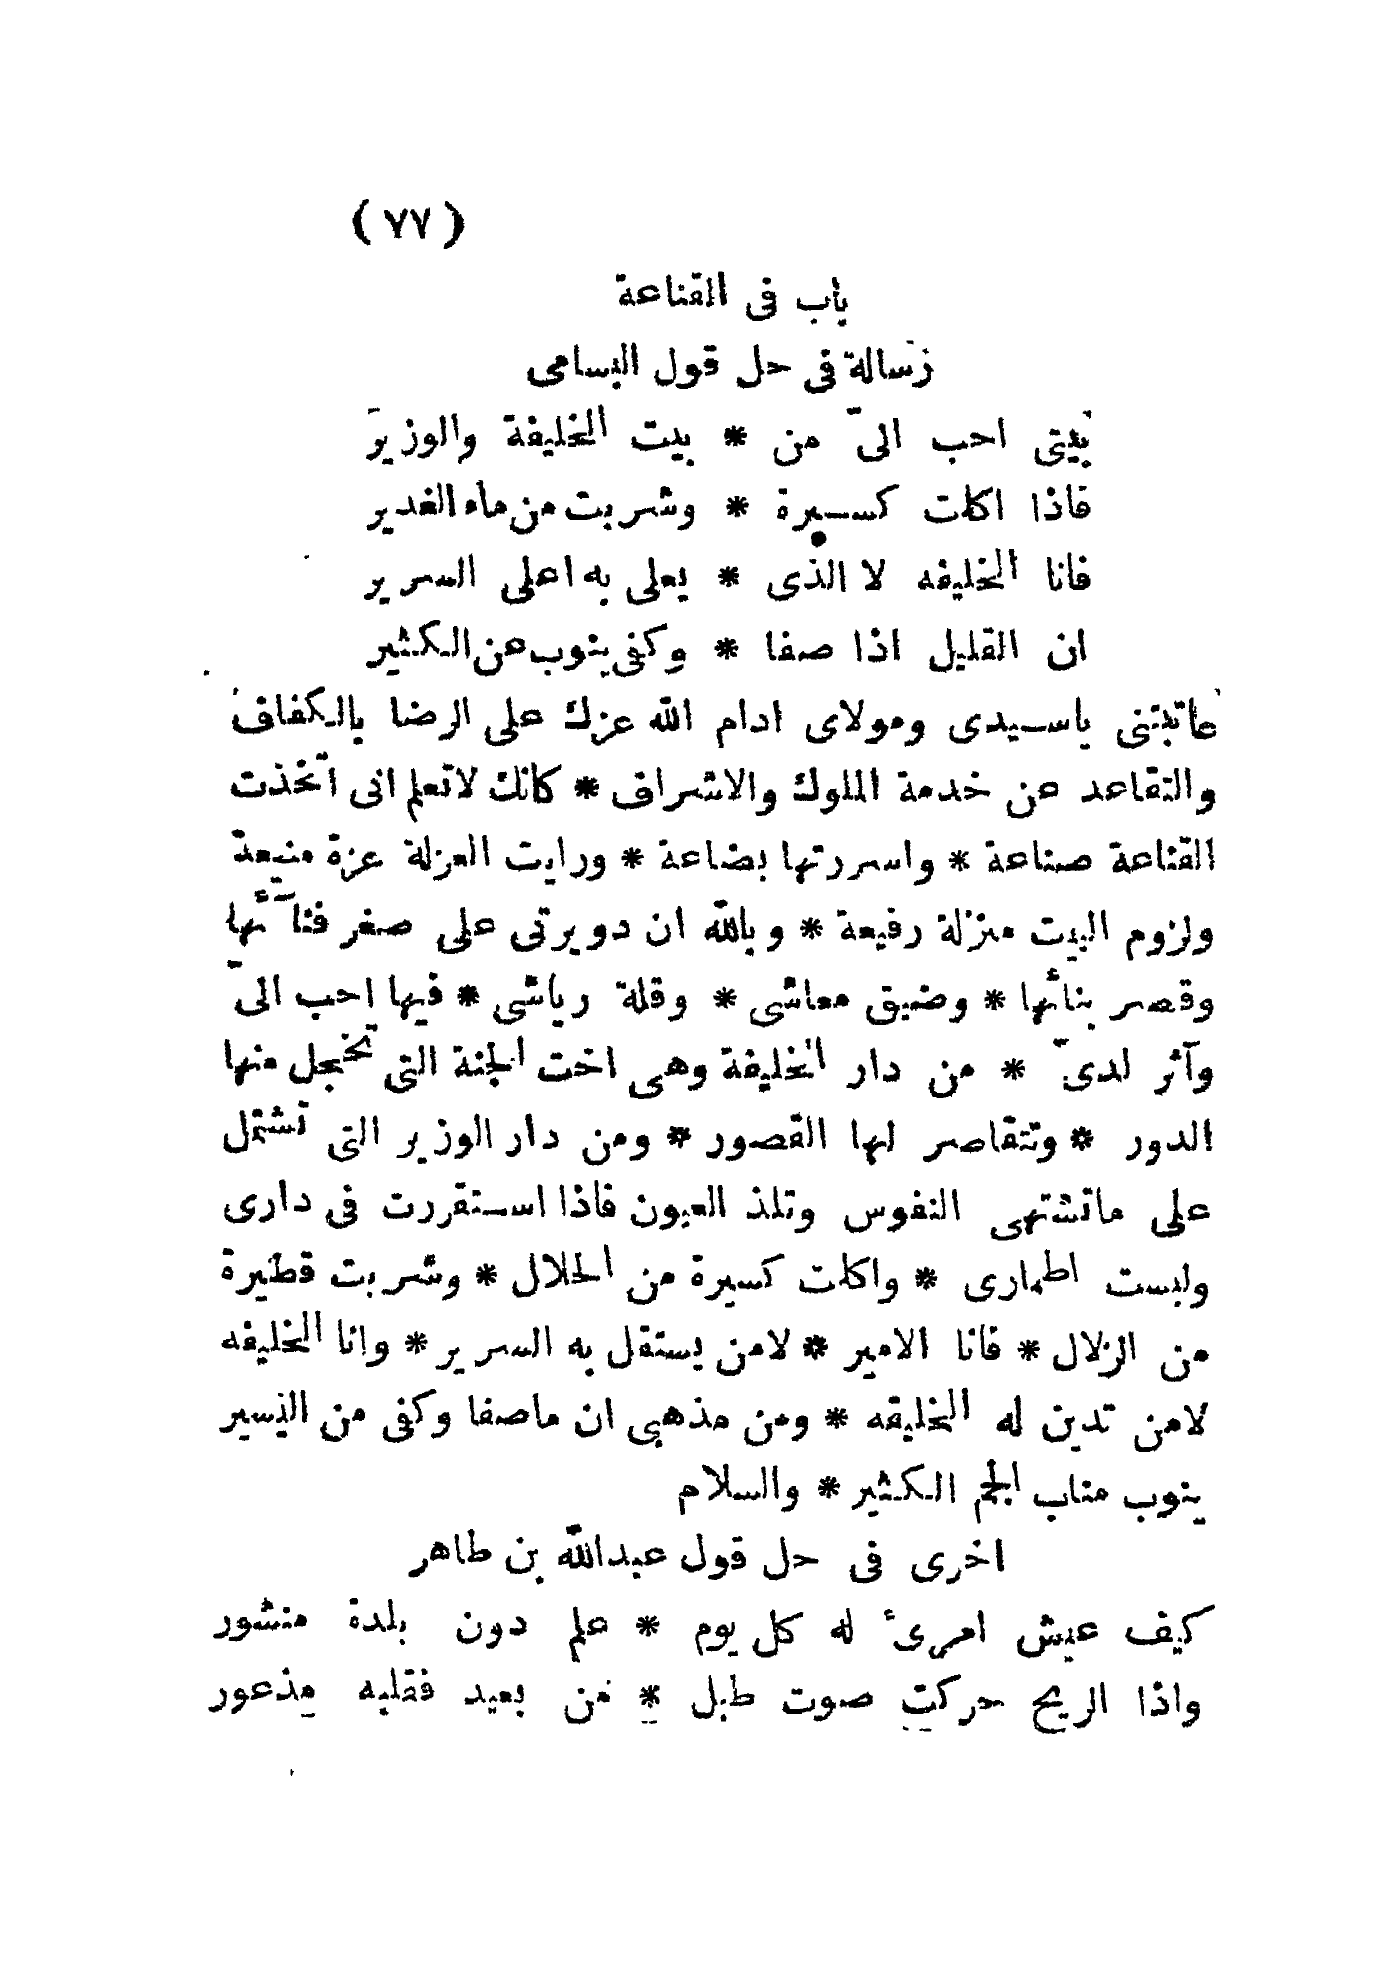 (٧٧)
باب فى القناعة
رسالة فى حل قول البسامى
بيتى احب الىّ من * بيت الخليفة والوزير
فاذا اكلت كسيرة * وشربت من ماء الغدير
فانا الخليفه لا الذى * يعلى به اعلى السرير
ان القليل اذا صفا * وكفى ينوب عن الكثير
عاتبتنى ياسيدى ومولاى ادام الله عزك على الرضا بالكفاف
والتقاعد عن خدمة الملوك والاشراف * كانك لاتعلم انى اتخذت
القناعة صناعة * واسررتها بضاعة * ورايت العزلة عزة منيعة
ولزوم البيت منزلة رفيعة * وبالله ان دويرتى على صغر فنآئها
وقصر بنائها * وضيق معاشى * وقلة رياشى * فيها احب الىّ
وآثر لدىّ * من دار الخليفة وهى اخت الجنة التى تخجل منها
الدور * وتتقاصر لها القصور * ومن دار الوزير التى تشتمل
على ماتشتهى النفوس وتلذ العيون فاذا استقررت فى دارى
ولبست اطمارى * واكلت كسيرة من الحلال * وشربت قطيرة
من الزلال * فانا الامير * لامن يستقل به السرير * وانا الخليفه
لامن تدين له الخليقه * ومن مذهبى ان ماصفا وكفى من اليسير
ينوب مناب الجم الكثير * والسلام
اخرى فى حل قول عبدالله بن طاهر
كيف عيش امرئ له كل يوم * علم دون بلدة منشور
واذا الريح حركت صوت طبل * من بعيد فقلبه مذعور